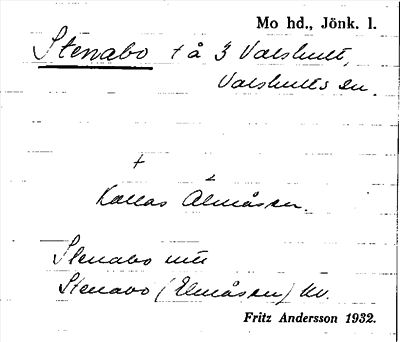 Mo hd., Jönk. l.
Stenabo + å 3 Valshult,
Valshults sn.
+
Kallas Älmåsen.
Stenabo nu
Stenabo (Elmåsen) kv.
Fritz Andersson 1932.